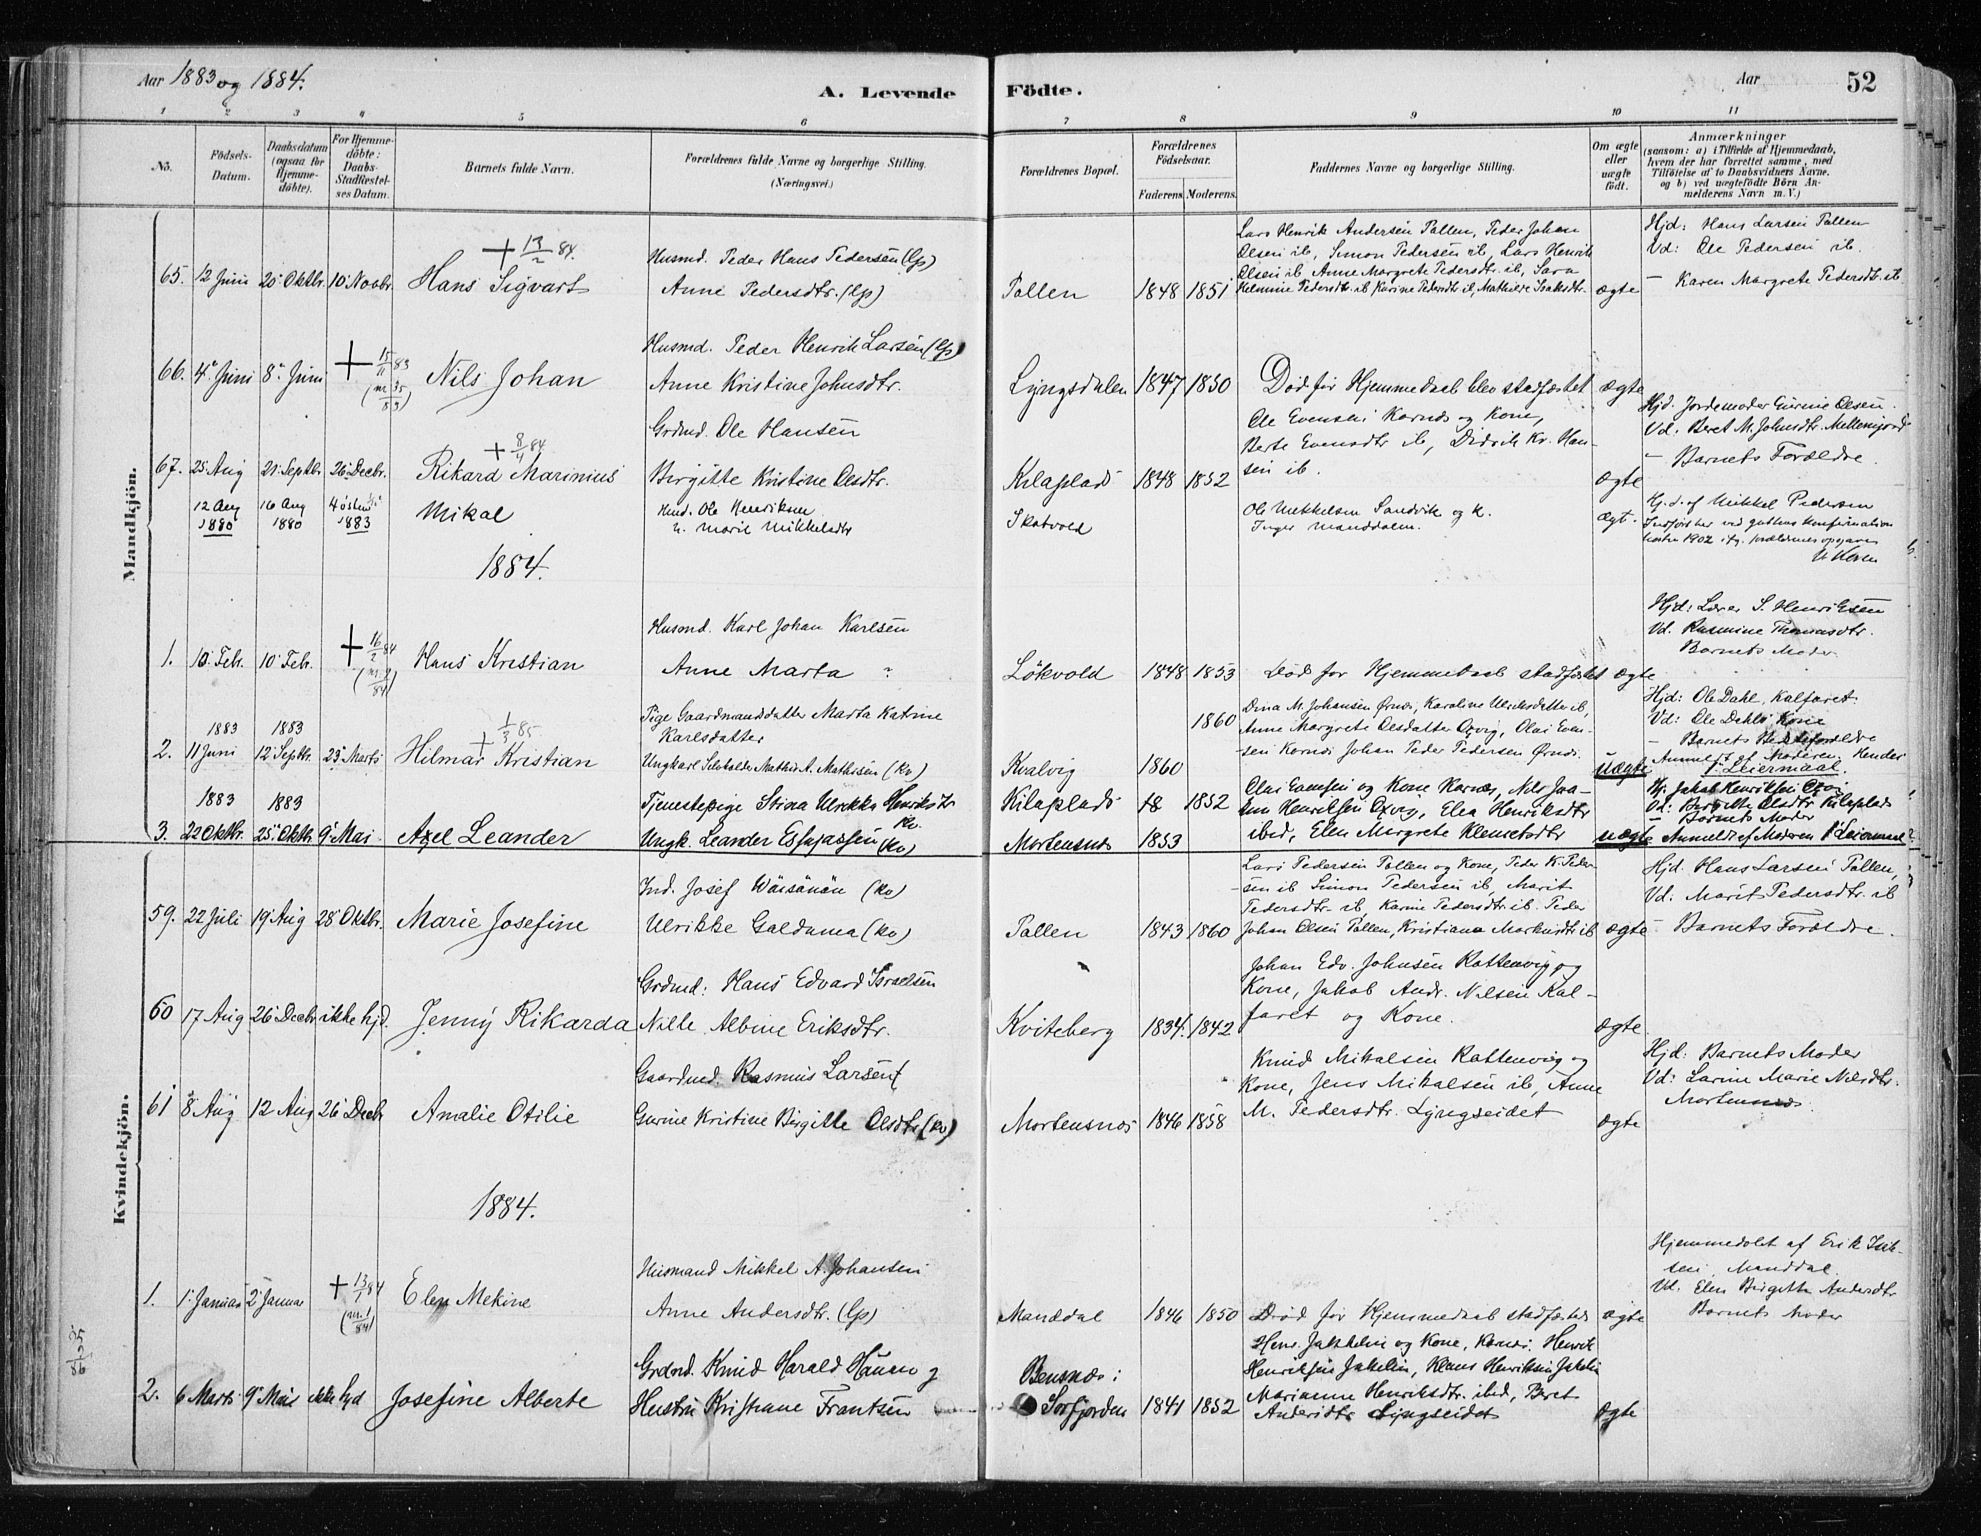 Aar 1883 og 1884.
A. Levende Födte.
Aar
52
1 2 3 4 5 6 7 8 9 10 11
Nô.
Födsels-Datum.
Daabsdatum (ogsaa for Hjemme-döbte).
For Hjemme-döbte: Daabs-Stadfæstel-ses Datum.
Barnets fulde Navn.
Forældrenes fulde Navne og borgerlige Stilling. (Næringsvei.)
Forældrenes Bopæl.
Forældrenes Födselsaar.
Faderens Moderens
Faddernes Navne og borgerlige Stilling.
Om ægte eller uægte födt.
Anmærkninger
(saasom: a) i Tilfælde af Hjemmedaab,
hvem der har forrettet samme, med
Tilföielse af to Daabsvidners Navne.
og b) ved uægtefödte Börn An-
melderens Navn m. V.)
Mandkjön.
+ 13/2 84.
65. 12 Juni 20 Oktbr. 10 Novbr. Hans Sigvart
Husmd. Peder Hans Pedersen (lp)
Anne Pedersdtr. (lp)
Pollen 1848 1851
Lars Henrik Andersen Pollen, Peder Johan
Olsen ib, Simon Pedersen ib, Lars Henrik
Olsen ib Anne Margrete Pedersdtr. ib, Sara
Helmine Pedersdtr. ib Karine Pedersdtr ib, Mathilde Isaksdtr.
ægte
Hjd: Hans Larsen Pollen
Vd: Ole Pedersen ib.
- Karen Margrete Pedersdtr. ib
66. 4 Juni 8 Juni + 15/11 83 (nr. 35/83) Nils Johan
Husmd. Peder Henrik Larsen (lp)
Anne Kristine Johnsdtr.
Lyngsdalen 1847 1850
Död før Hjemmedaab blev stadfæstet
ægte
+ 8/4 84
67. 25 Aug 21 Septbr. 26 Decbr. Rikard Marinius
Grdmd. Ole Hansen
Birgitte Kristine Olsdtr.
Kilaplads 1848 1852
Ole Evensen Kornæs og Kone,
Berte Evensdtr ib, Didrik Kr. Han-
sen ib.
ægte
Hjd. Jordemoder Gurine Olsen.
Vd. Beret M. Johnsdtr. Mellemjord
- Barnets Forældre.
12 Aug 1880 16 Aug 1880 1883 Mikal
Ole Henriksen
h. Marie Mikkelsdtr
Skatvold
Ole Mikkelsen Sandvik og k.
Inger Manddalen.
ægt.
Hj.d. af Mikkel Pedersen
Indført her ved guttens konfirmation
1902
1884.
1. 10 Febr. 10 Febr. + 16/2 84 Hans Kristian
Husmd. Karl Johan Karlsen
Anne Marta ?
Lökvold 1848 1853
Död før Hjemmedaab stadfæstet ægte
Hjd: Lærer S. Henriksen
Vd. Rasmine Thomasdtr.
Barnets Moder
1883 1883
2. 11 Juni 12 Septbr. 23 Marts Hilmar Kristian
+ 1/3 85
Pige Gaardmandsdatter Marta Katrine
Karlsdatter
Ungkarl Selvholder Mathis A. Mathisen (kv)
Kvalvig 1860 1860
Dina M. Johansen Ørnæs, Karoline Ulriksdatter ib,
Anne Margrete Olsdatter Oxvig, Olai Even-
sen Kornæs Johan Peder Pedersen Ørnæs.
uægte
Hjd: Ole Dahl, Kalfaret.
Vd: Ole Dahls Kone
Anmeldt af Moderen. Hendes
1ste Leiermaal.
1883 1883
3. 22 Oktbr. 25 Oktbr 9 Mai. Axel Leander
Tjenestepige Stina Ulrikka Henriksdtr
kv.
Ungk. Leander Essajassen (kv)
Kilaplads 1852
Mortensnæs 1853
Olai Evensen og Kone Kornæs, Nils Joa-
kim Henriksen Oxvig, Elea Henriksdtr
ibid, Elen Margrete Klemetsdtr
uægte
Hj. Jakob Henriksen Oxvig
Vd: Birgitte Olsdtr Kilaplads
- Barnets Moder
Anmeldt af Moderen 1ste Leiermaal
Kvindekjön.
59. 22 Juli 19 Aug 28 Oktbr. Marie Josefine
Ind. Josef Wäisänän (kv)
Ulrikke Galdama (kv)
Pollen 1843 1860
Lars Pedersen Pollen og Kone, Peder K. Peder-
sen ib Simon Pedersen ib, Marit
Pedersdtr. ib, Karine Pedersdtr. ib. Peder
Johan Olsen Pollen, Kristiana Markusdtr ib
ægte
Hjd: Hans Larsen Pollen,
Vd: Marit Pedersdtr. ib
- Barnets Forældre.
60 17 Aug 26 Decbr ikke hjd. Jenny Rikarda
Grdmd: Hans Edvard Israelsen
Nille Albine Eriksdtr.
Kviteberg 1834. 1842
Johan Edv. Johnsen Rottenvig og
Kone, Jakob Andr. Nilsen Kal-
faret og Kone.
ægte.
61 8 Aug 12 Aug 26 Decbr Amalie Otilie
Gaardmd. Rasmus Larsen
Gurine Kristine Birgitte Olsdtr (kv)
Mortensnæs 1846 1858
Knud Mikalsen Rottenvig og
Kone, Jens Mikalsen ib, Anne
M. Pedersdtr. Lyngseidet
ægte
Hjd: Barnets Moder
Vd: Larine Marie Nilsdtr.
Mortensnæs.
1884.
1. 1 Januar 2 Januar + 13/1 84 (nr. 1/84) Elen Mekine
Husmand Mikkel A. Johansen
Anne Andersdtr. (lp)
Manddal 1846 1850
Död før Hjemmedaab stadfæstedes ægte
Hjemmedøbt af Erik Isak-
sen Manddal.
Vd. Elen Birgitte Andersdtr
Barnets Moder
2. 6 Marts 9 Mai ikke hjd Josefine Alberte
Grdmd. Knud Harald Hansen og
Hustru Kristiane Frantsen
Bensnæs i
Sørfjorden 1841 1852
Henr. Jakkelin og Kone, Kornæs. Henrik
Henriksen Jakelin, Klaus Henriksen Jakelin
Marianne Henriksdtr. ibid, Beret
Andersdtr Lyngseidet
ægte